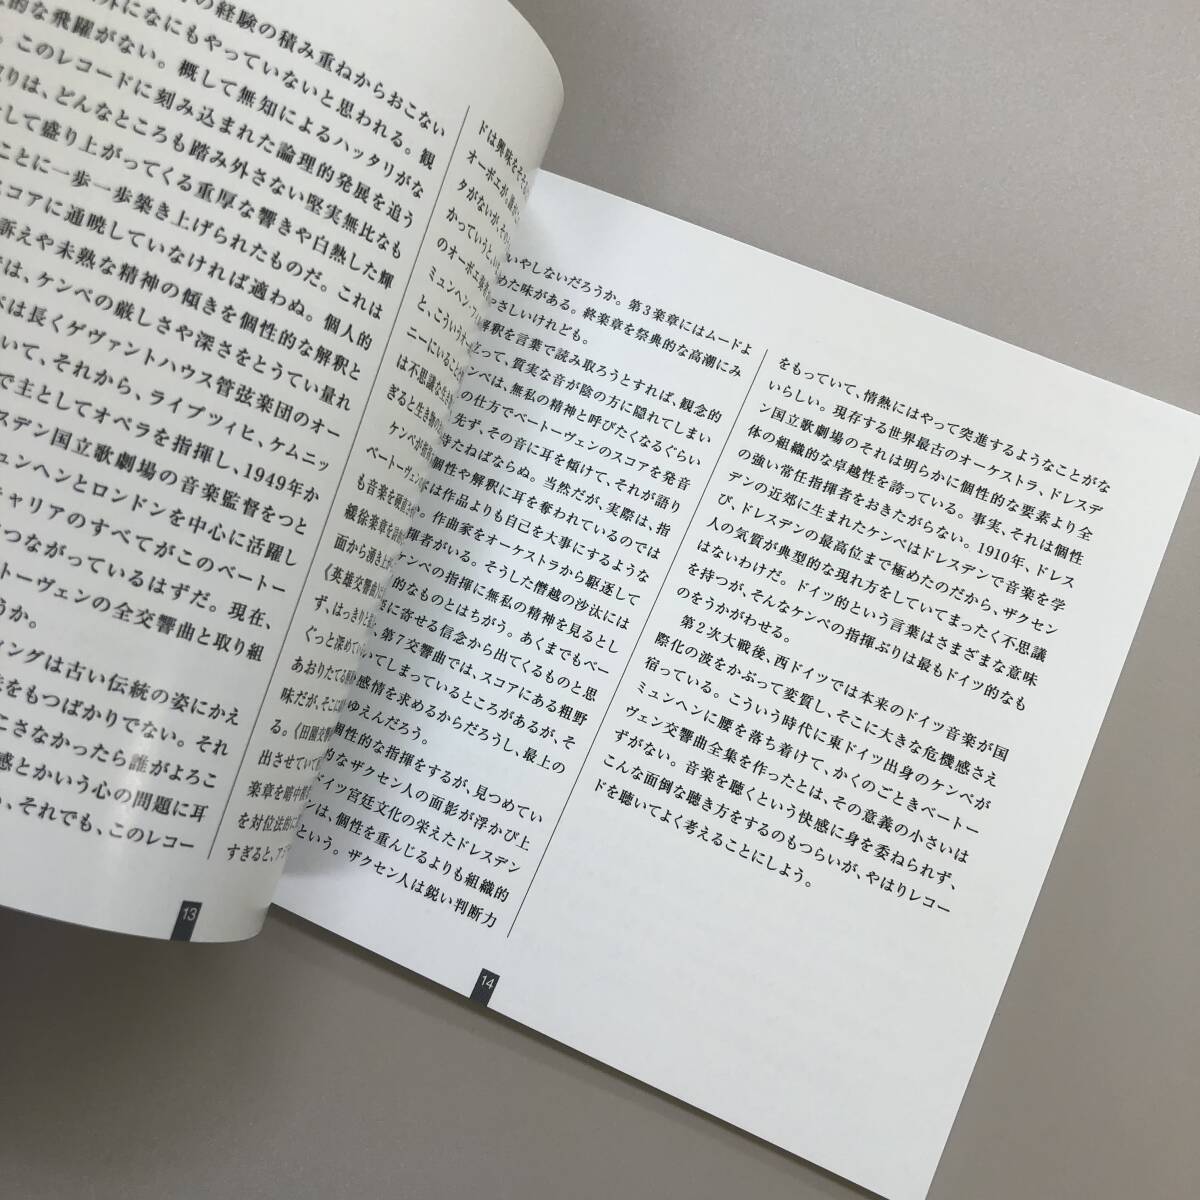 の経験の積み重ねからおこない
外になにもやっていないと思われる。観
的な飛躍がない。概して無知によるハッタリがな
。このレコードに刻み込まれた論理的発展を追う
りは、どんなところも踏み外さない堅実無比なも
して盛り上がってくる重厚な響きや白熱した輝
ことに一歩一歩築き上げられたものだ。これは
スコアに通暁していなければ適わぬ。個人的
訴えや未熟な精神の傾きを個性的な解釈と
では、ケンペの厳しさや深さをとうてい量れ
ペは長くゲヴァントハウス管弦楽団のオー
いて、それから、ライプツィヒ、ケムニッ
で主としてオペラを指揮し、1949年か
スデン国立歌劇場の音楽監督をつと
ュンヘンとロンドンを中心に活躍し
キャリアのすべてがこのベートー
つながっているはずだ。現在、
トーヴェンの全交響曲と取り組
うか。
ィングは古い伝統の姿にかえ
をもつばかりでない。それ
こさなかったら誰がよろこ
感とかいう心の問題に耳
、それでも、このレコー
ドは興味をそそ
オーボエが、
タがないが、その
かっていうと、い
のオーボエ奏者
ミュンヘン・フィ
と、こういう
ニーにいること
は不思議な生き
ぎると生き物の
ケンペが指揮
ベートーヴェンが
も音楽を硬直させ
緩徐楽章を
面から湧き上が
《英雄交響曲》
ず、はっきりと
ぐっと深めてい
あおりたてる
味だが、そこに
る。《田園交響
出させていて
楽章を暗中模
を対位法的に
すぎると、ア
13
いやしないだろうか。第3楽章にはムードよ
めた味がある。終楽章を祭典的な高潮にみ
っさしいけれども。
解釈を言葉で読み取ろうとすれば、観念的
立って、質実な音が陰の方に隠れてしまい
ンペは、無私の精神と呼びたくなるぐらい
の仕方でベートーヴェンのスコアを発音
先ず、その音に耳を傾けて、それが語り
待たねばならぬ。当然だが、実際は、指
個性や解釈に耳を奪われているのでは
は作品よりも自己を大事にするような
。作曲家をオーケストラから駆逐して
揮者がいる。そうした僭越の沙汰には
ケンペの指揮に無私の精神を見るとし
的なものとはちがう。あくまでもベー
に寄せる信念から出てくるものと思
第7交響曲では、スコアにある粗野
いてしまっているところがあるが、そ
感情を求めるからだろうし、最上の
ゆえんだろう。
個性的な指揮をするが、見つめてい
的なザクセン人の面影が浮かび上
イツ宮廷文化の栄えたドレスデン
ンは、個性を重んじるよりも組織的
という。ザクセン人は鋭い判断力
をもっていて、情熱にはやって突進するようなことがな
いらしい。現存する世界最古のオーケストラ、ドレスデ
ン国立歌劇場のそれは明らかに個性的な要素より全
体の組織的な卓越性を誇っている。事実、それは個性
の強い常任指揮者をおきたがらない。1910年、ドレス
デンの近郊に生まれたケンペはドレスデンで音楽を学
び、ドレスデンの最高位まで極めたのだから、ザクセン
人の気質が典型的な現れ方をしていてまったく不思議
はないわけだ。ドイツ的という言葉はさまざまな意味
を持つが、そんなケンペの指揮ぶりは最もドイツ的なも
のをうかがわせる。
第2次大戦後、西ドイツでは本来のドイツ音楽が国
際化の波をかぶって変質し、そこに大きな危機感さえ
宿っている。こういう時代に東ドイツ出身のケンペが
ミュンヘンに腰を落ち着けて、かくのごときベートー
ヴェン交響曲全集を作ったとは、その意義の小さいは
ずがない。音楽を聴くという快感に身を委ねられず、
こんな面倒な聴き方をするのもつらいが、やはりレコー
ドを聴いてよく考えることにしよう。
14